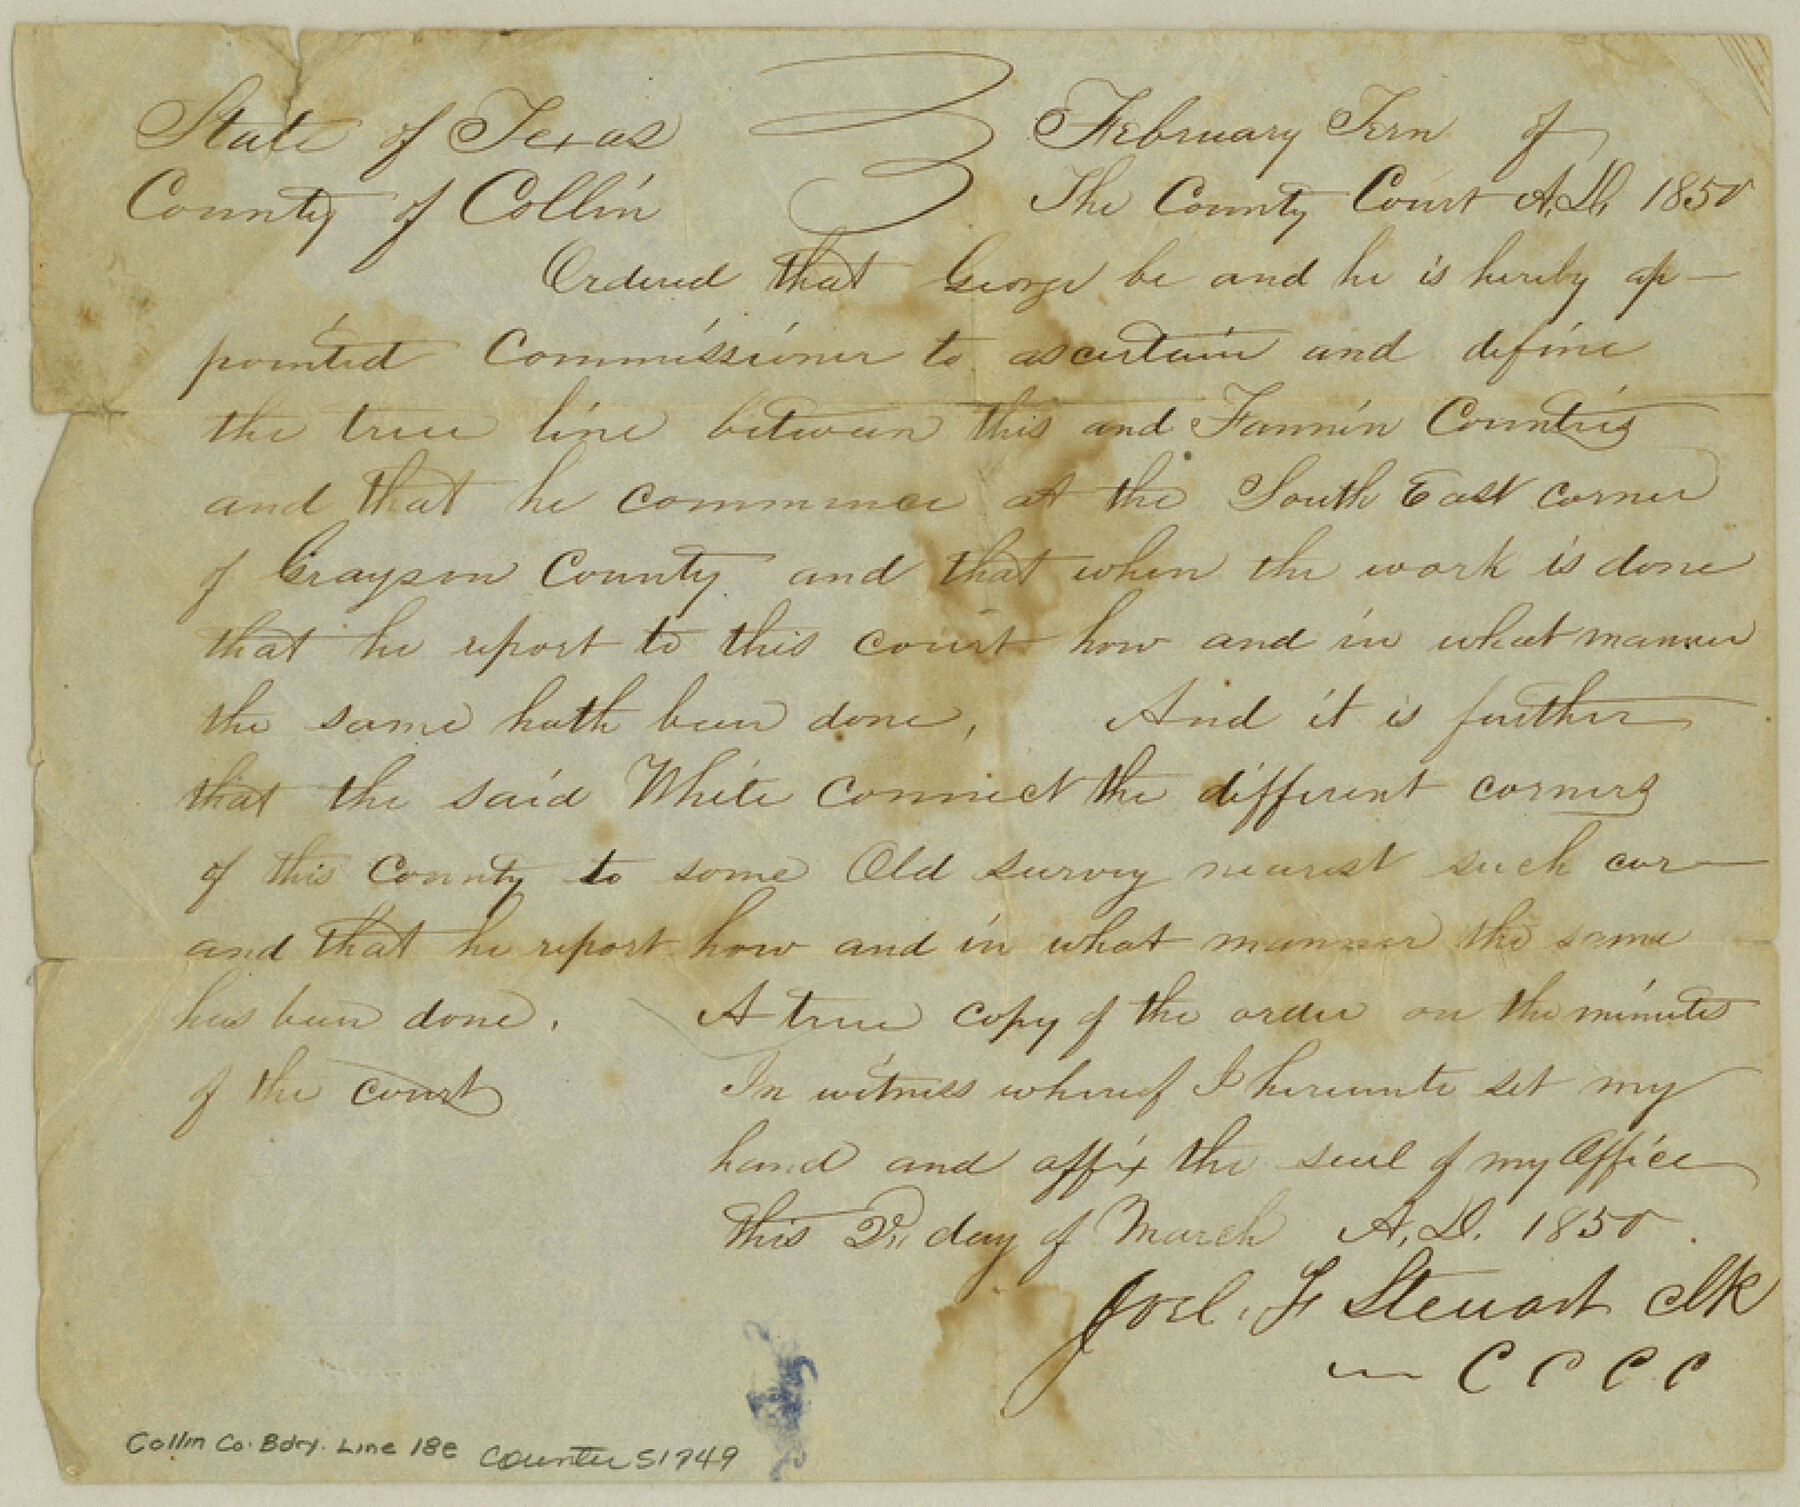 State of Texas February Term of
County of Collin The County Court A.D. 1850
Ordered that George be and he is hereby ap-
pointed Commissioner to ascertain and define
the true line between this and Fannin Counties
and that he commence at the South East corner
of Grayson County and that when the work is done
that he report to this court how and in what manner
the same hath been done, And it is further
that the said White connect the different corners
of this County to some Old survey nearest such cor-
and that he report how and in what manner the same
has been done. A true copy of the order on the minutes
of the court In witness whereof I hereunto set my
hand and affix the seal of my Office
this day of March A.D. 1850.
Joel. F Stewart clk
C C C C
Collin Co. Bdry. Line 18e Counter 51749